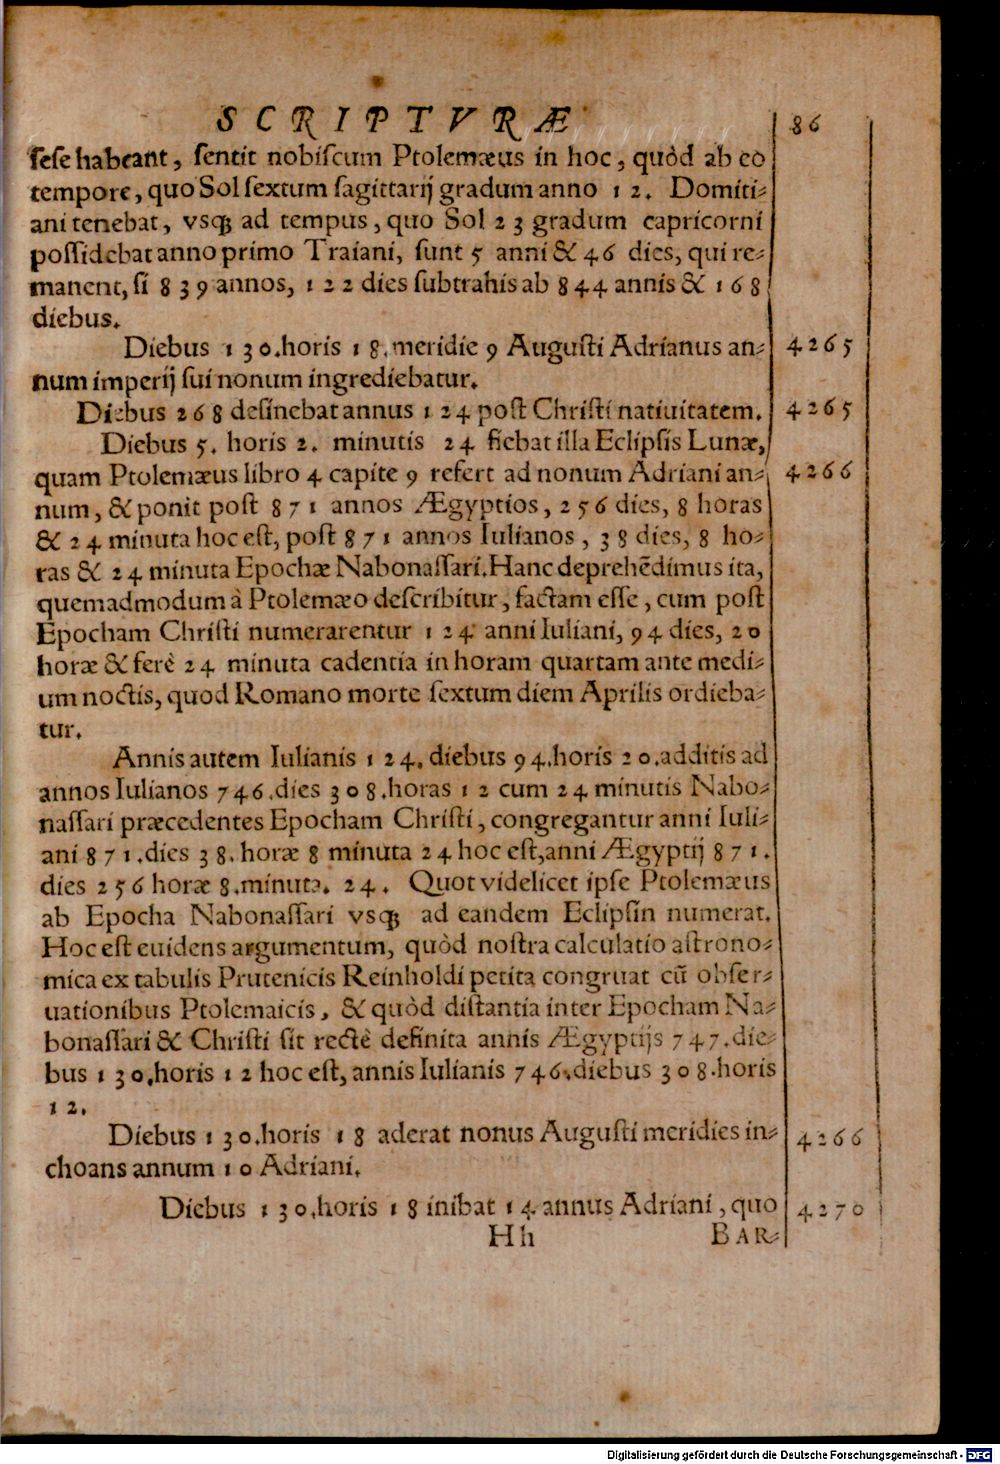 SCRIPTVRÆ 86
ſeſe habeant, ſentit nobiſcum Ptolemæus in hoc, quòd ab eo
tempore, quo Sol ſextum ſagittarij gradum anno 12. Domiti⸗
ani tenebat, vsqꝫ ad tempus, quo Sol 23 gradum capricorni
poſſidebat anno primo Traiani, ſunt 5 anni & 46 dies, qui re⸗
manent, ſi 839 annos, 122 dies ſubtrahis ab 844 annis & 168
diebus.
Diebus 130. horis 18. meridie 9 Auguſti Adrianus an⸗ 4265
num imperij ſui nonum ingrediebatur.
Diebus 268 deſinebat annus 124 poſt Chriſti natiuitatem. 4265
Diebus 5. horis 2. minutis 24 fiebat illa Eclipſis Lunæ,
quam Ptolemæus libro 4 capite 9 refert ad nonum Adriani an⸗ 4266
num, & ponit poſt 871 annos Ægyptios, 256 dies, 8 horas
& 24 minuta hoc eſt, poſt 871 annos Iulianos, 38 dies, 8 ho⸗
ras & 24 minuta Epochæ Nabonaſſari. Hanc deprehẽdimus ita,
quemadmodum à Ptolemæo deſcribitur, factam eſſe, cum poſt
Epocham Chriſti numerarentur 124 anni Iuliani, 94 dies, 20
horæ & ferè 24 minuta cadentia in horam quartam ante medi⸗
um noctis, quod Romano morte ſextum diem Aprilis ordieba⸗
tur.
Annis autem Iulianis 124. diebus 94. horis 20. additis ad
annos Iulianos 746. dies 308. horas 12 cum 24 minutis Nabo⸗
naſſari præcedentes Epocham Chriſti, congregantur anni Iuli⸗
ani 871. dies 38. horæ 8 minuta 24 hoc eſt, anni Ægyptij 871.
dies 256 horæ 8. minuta. 24. Quot videlicet ipſe Ptolemæus
ab Epocha Nabonaſſari vsqꝫ ad eandem Eclipſin numerat.
Hoc eſt euidens argumentum, quòd noſtra calculatio aſtrono⸗
mica ex tabulis Prutenicis Reinholdi petita congruat cũ obſer⸗
uationibus Ptolemaicis, & quòd diſtantia inter Epocham Na⸗
bonaſſari & Chriſti ſit rectè definita annis Ægyptijs 747. die⸗
bus 130. horis 12 hoc eſt, annis Iulianis 746. diebus 308. horis
12.
Diebus 130. horis 18 aderat nonus Auguſti meridies in⸗ 4266
choans annum 10 Adriani.
Diebus 130. horis 18 inibat 14 annus Adriani, quo 4270
Hh BAR⸗
Digitalisierung gefördert durch die Deutsche Forschungsgemeinschaft - DFG